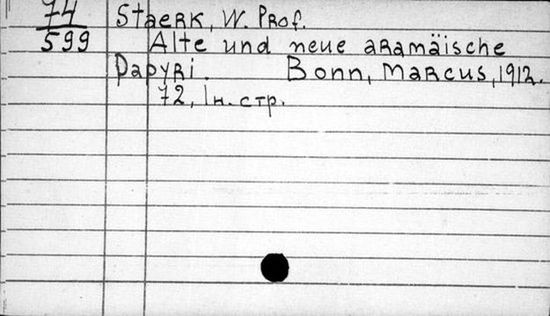 74 Staerk, W. Prof.
599 Alte und neue aramäische
Papyri. Bonn, Marcus, 1912.
72, 1н. стр.